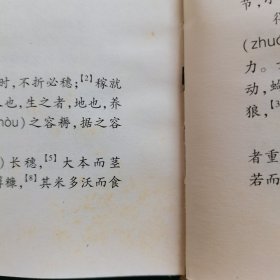 时，不折必穗；[2]稼就
也，生之者，地也，养
hòu）之容耨，据之容
）长穗，[5]大本而茎
糠，[8]其米多沃而食
节，
(zhuó
力。
动，
狼，[3
者重
若而